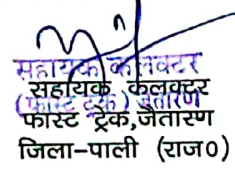 सहायक कलक्टर
(फास्ट ट्रेक) जैतारण
सहायक कलक्टर
फास्ट ट्रेक,जैतारण
जिला-पाली (राज0)